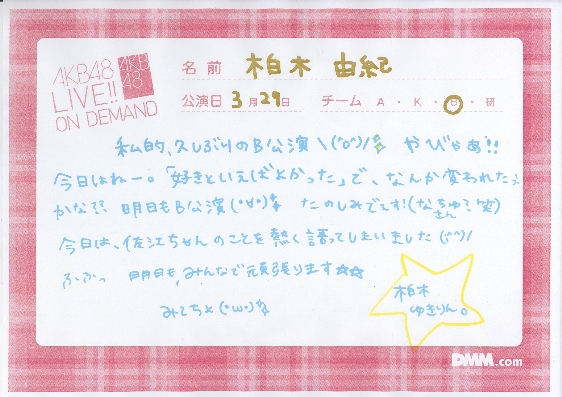 AKB48
LIVE!!
ON DEMAND
AKB48
名前 柏木 由紀
公演日 3月29日 チーム A・K・B・研
私的、久しぶりのB公演\(^o^)/ やびゃあ!!
今日はねー。「好きといえばよかった」で、なんか変われたっ
かな?? 明日もB公演(・∀・) たのしみでえす!(なちゅさん?笑)
今日は、佐江ちゃんのことを熱く語ってしまいました(^^)/
ふふっ 明日も、みんなで頑張ります☆☆
みてちょ(・ω・)
柏木
ゆきりん。
DMM.com